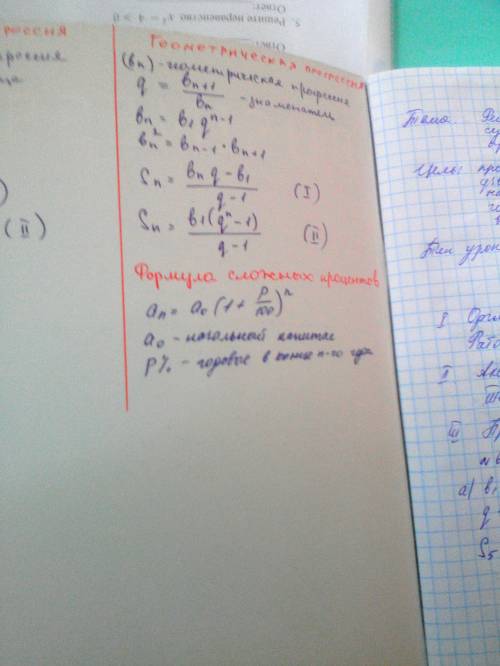 5. Решите неравенство x² − 4 > 0
Ответ:
Ответ:
рессия
рогрессия
ца
)
(II)
Геометрическая прогрессия
(bn) - геометрическая прогрессия
q = bn+1 / bn - знаменатель
bn = b1 q^n-1
bn² = bn-1 · bn+1
Sn = (bn q − b1) / (q − 1) (I)
Sn = b1(q^n − 1) / (q − 1) (II)
Формула сложных процентов
an = a0 (1 + p/100)^n
a0 - начальный капитал
p% - годовое в конце n-го года
Тема
Цель:
Тип урок
I Орга
Рабо
II
III
а) b1
q
S5